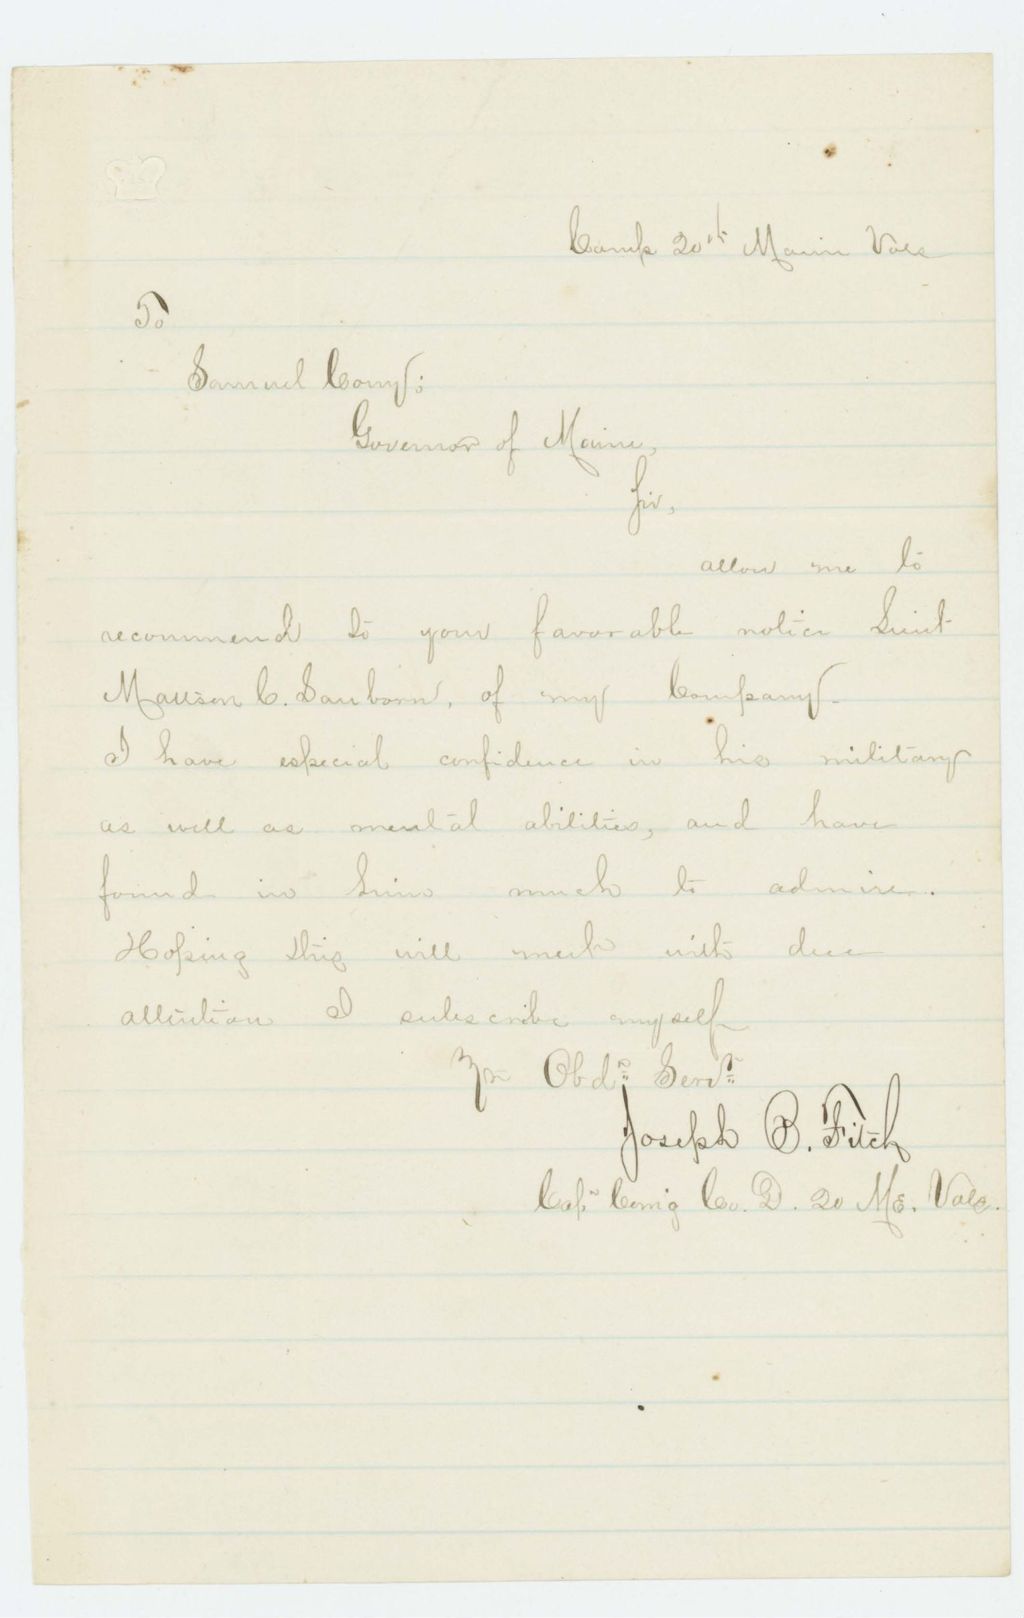 Camp 20th Maine Vols
To
Samuel Cony;
Governor of Maine,
Sir,
allow me to
recommend to your favorable notice Lieut
C. Sanborn, of my Company.
I have especial confidence in his military
as well as mental abilities, and have
found in him much to admire.
Hoping this will meet with due
attention I subscribe myself
Yr Obdt Servt
Joseph B. Fitch
Capt Comg Co. D. 20 Me. Vols.